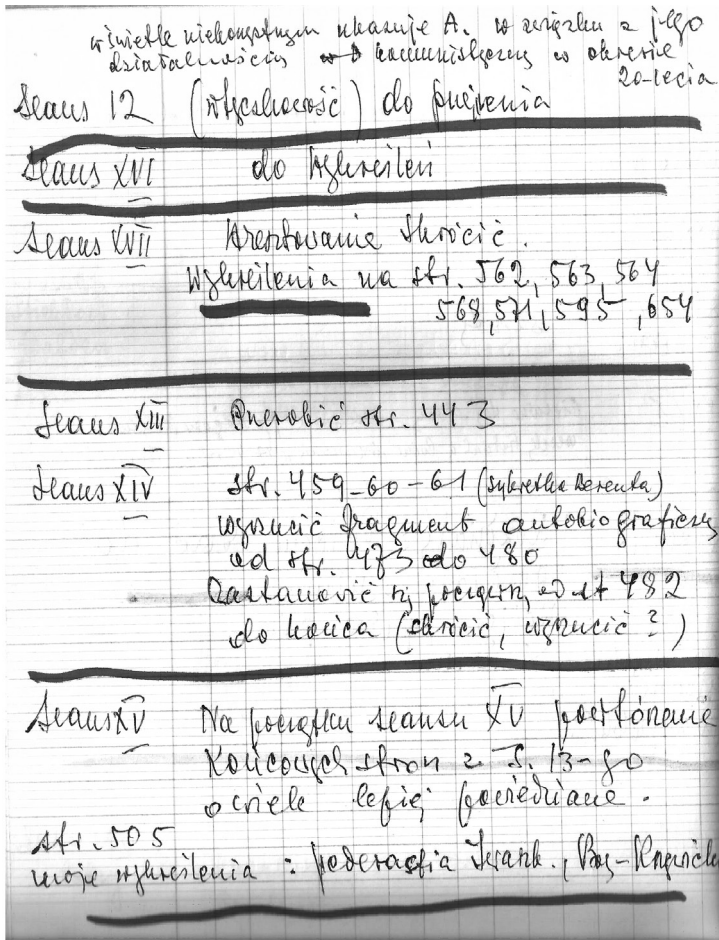 w świetle niekorzystnym ukazuje A. w związku z jego
działalnością komunistyczną w okresie
20-lecia
Seans 12 (wtyczkowość) do przejrzenia
Seans XVI do wykreśleń
Seans XVII Aresztowanie skrócić.
Wykreślenia na str. 562, 563, 564
568, 571, 595, 654
Seans XIII Przerobić str. 443
Seans XIV str. 459-60-61 (sylwetka Berenta)
wyrzucić fragment autobiograficzny
od str. 473 do 480
Zastanowić się począwszy od st 482
do końca (skrócić, wyrzucić?)
Seans XV Na początku seansu XV powtórzenie
końcowych stron z S. 13-go
o wiele lepiej powiedziane.
str. 505
moje wykreślenia : pederastia Iwaszk., Boy-